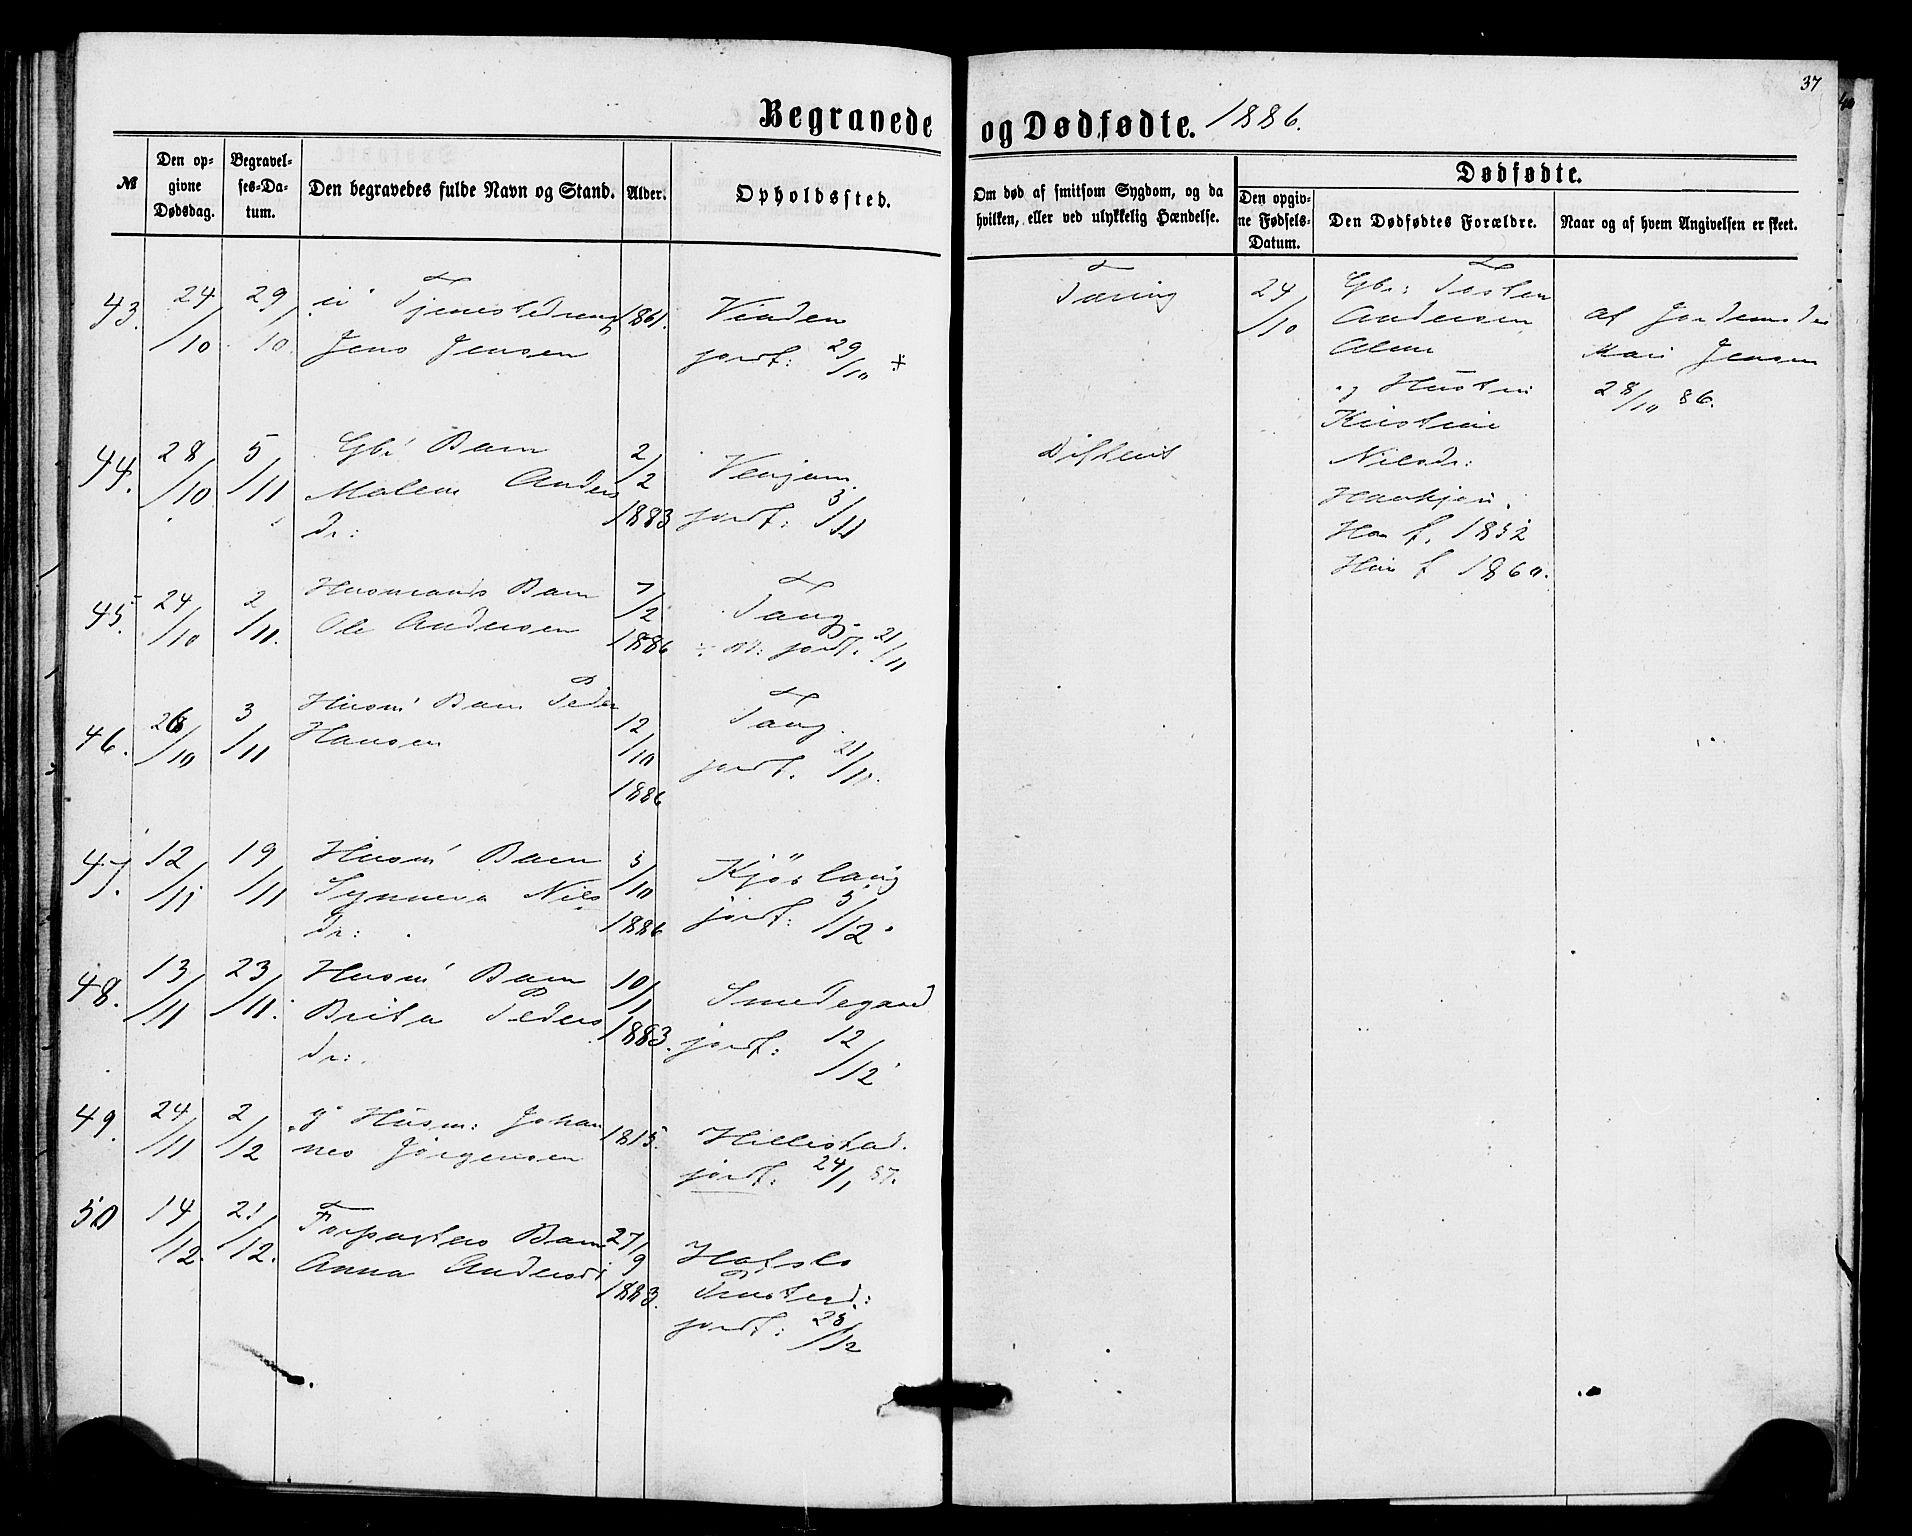 37
Begravede og Dødfødte. 1886.
№ Den opgivne Dødsdag. Begravelses-Datum. Den begravedes fulde Navn og Stand. Alder. Opholdssted. Om død af smitsom Sygdom, og da hvilken, eller ved ulykkelig Hændelse. Dødfødte.
Den opgivne Fødsels-Datum. Den Dødfødtes Forældre. Naar og af hvem Angivelsen er skeet.
43. 24/10 29/10 Tjenestedreng 1861. Tæring
Jens Jensen
jordf: 29/10
44. 28/10 5/11 Gbr Barn 2/2 1883
Malene Anders
dr:
jordf:
45. 24/10 2/11. Husmands Barn 7/2 1886 Tang.
Ole Andersen
jordf. 21/11
46. 26/10 3/11 Husm Barn Peder 12/10 1886 Tang
Hansen
jordf. 21/11.
47. 12/11 19/11 Husm Barn 3/10 1886
Synneva Nils
dr:
jordf: 5/12
48. 13/11 23/11. Husm Barn 10/1 1883. Smedegaard
Brita Peders
dr:
jordf: 12/12
49. 24/11 2/12 Husm: Johan 1815. Hillestad.
nes Jørgensen
jordf. 24/1 87.
50 14/12. 21/12. Forpagters Barn 27/9 1883. Hafslo
Anna Andersd
jordf: 28/12
24/10
Gbr: Torsten
Andersen
og Hustru
Kristine
Nilsdr:
Han f. 1852
Hun f 1860.
af Jordemoder
Mari Jensen
28/10 86.